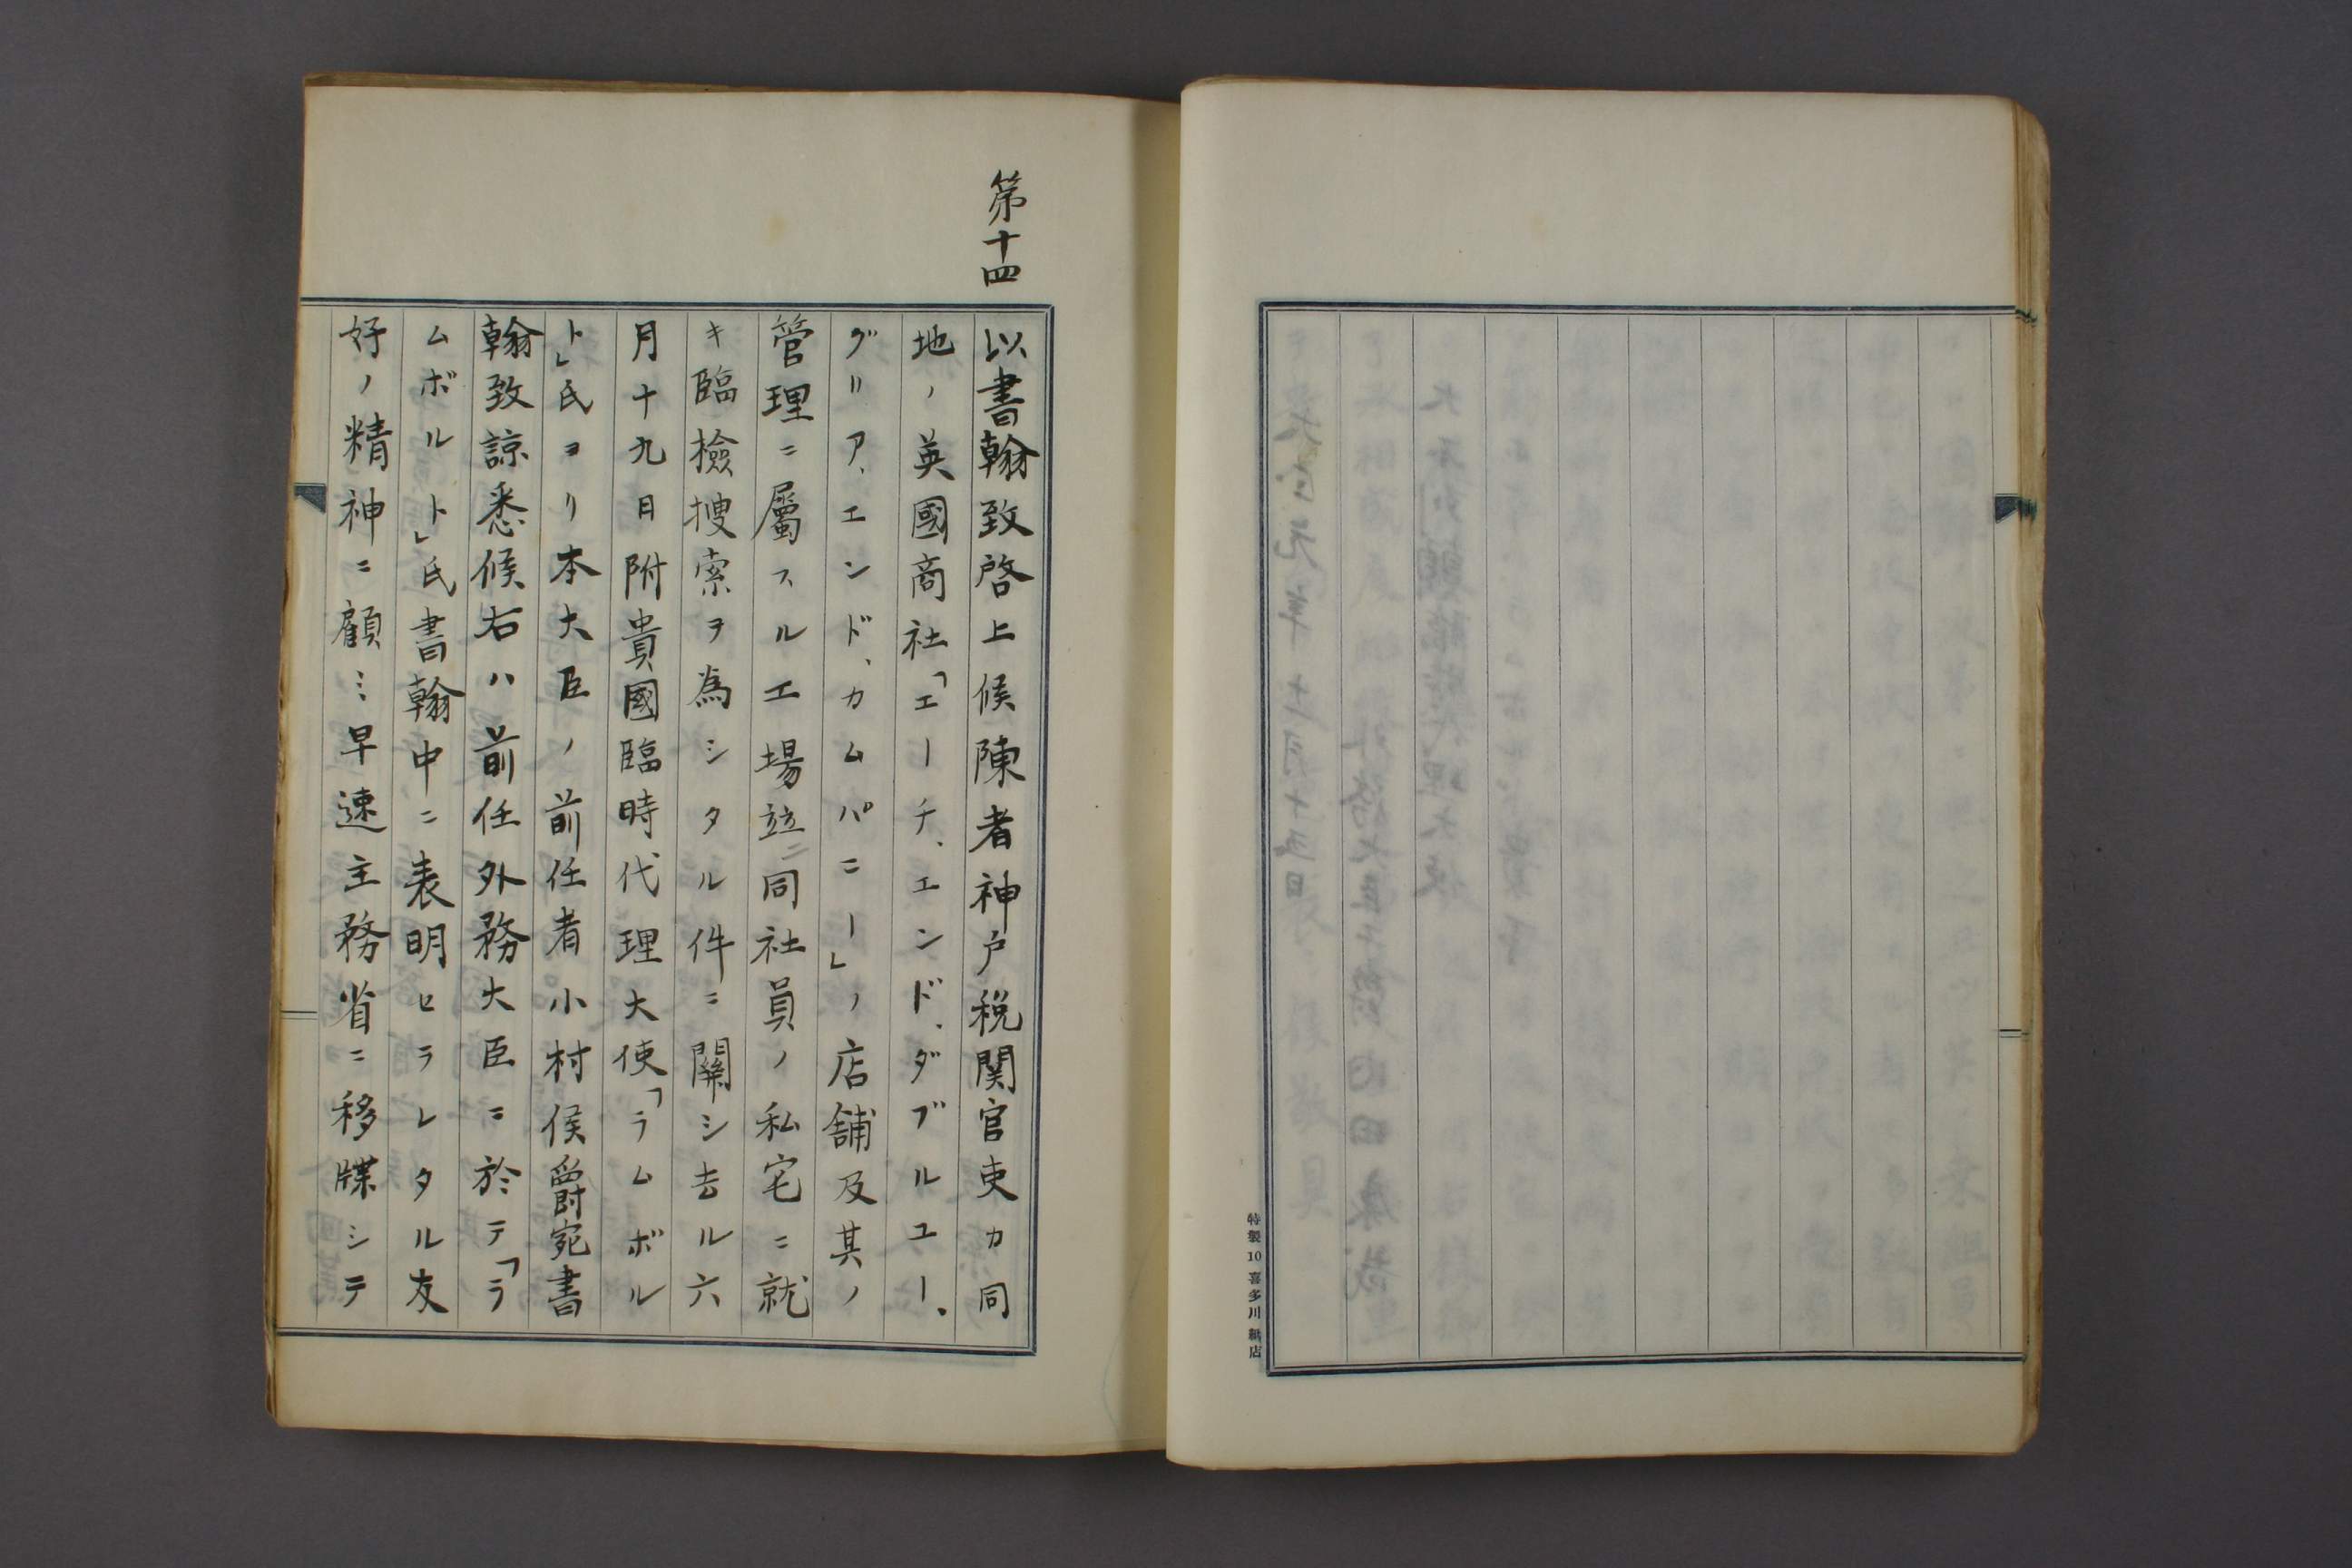 特製10喜多川紙店
第十四
以書翰致啓上候陳者神户税関官吏カ同
地ノ英國商社「エーチ、エンド、ダブルユー、
グリア、エンド、カムパニー」ノ店舗及其ノ
管理ニ屬スル工場竝ニ同社員ノ私宅ニ就
キ臨檢搜索ヲ為シタル件ニ關シ去ル六
月十九日附貴國臨時代理大使「ラムボル
ト」氏ヨリ本大臣ノ前任者小村侯爵宛書
翰致諒悉候右ハ前任外務大臣ニ於テ「ラ
ムボルト」氏書翰中ニ表明セラレタル友
好ノ精神ニ顧ミ早速主務省ニ移牒シテ